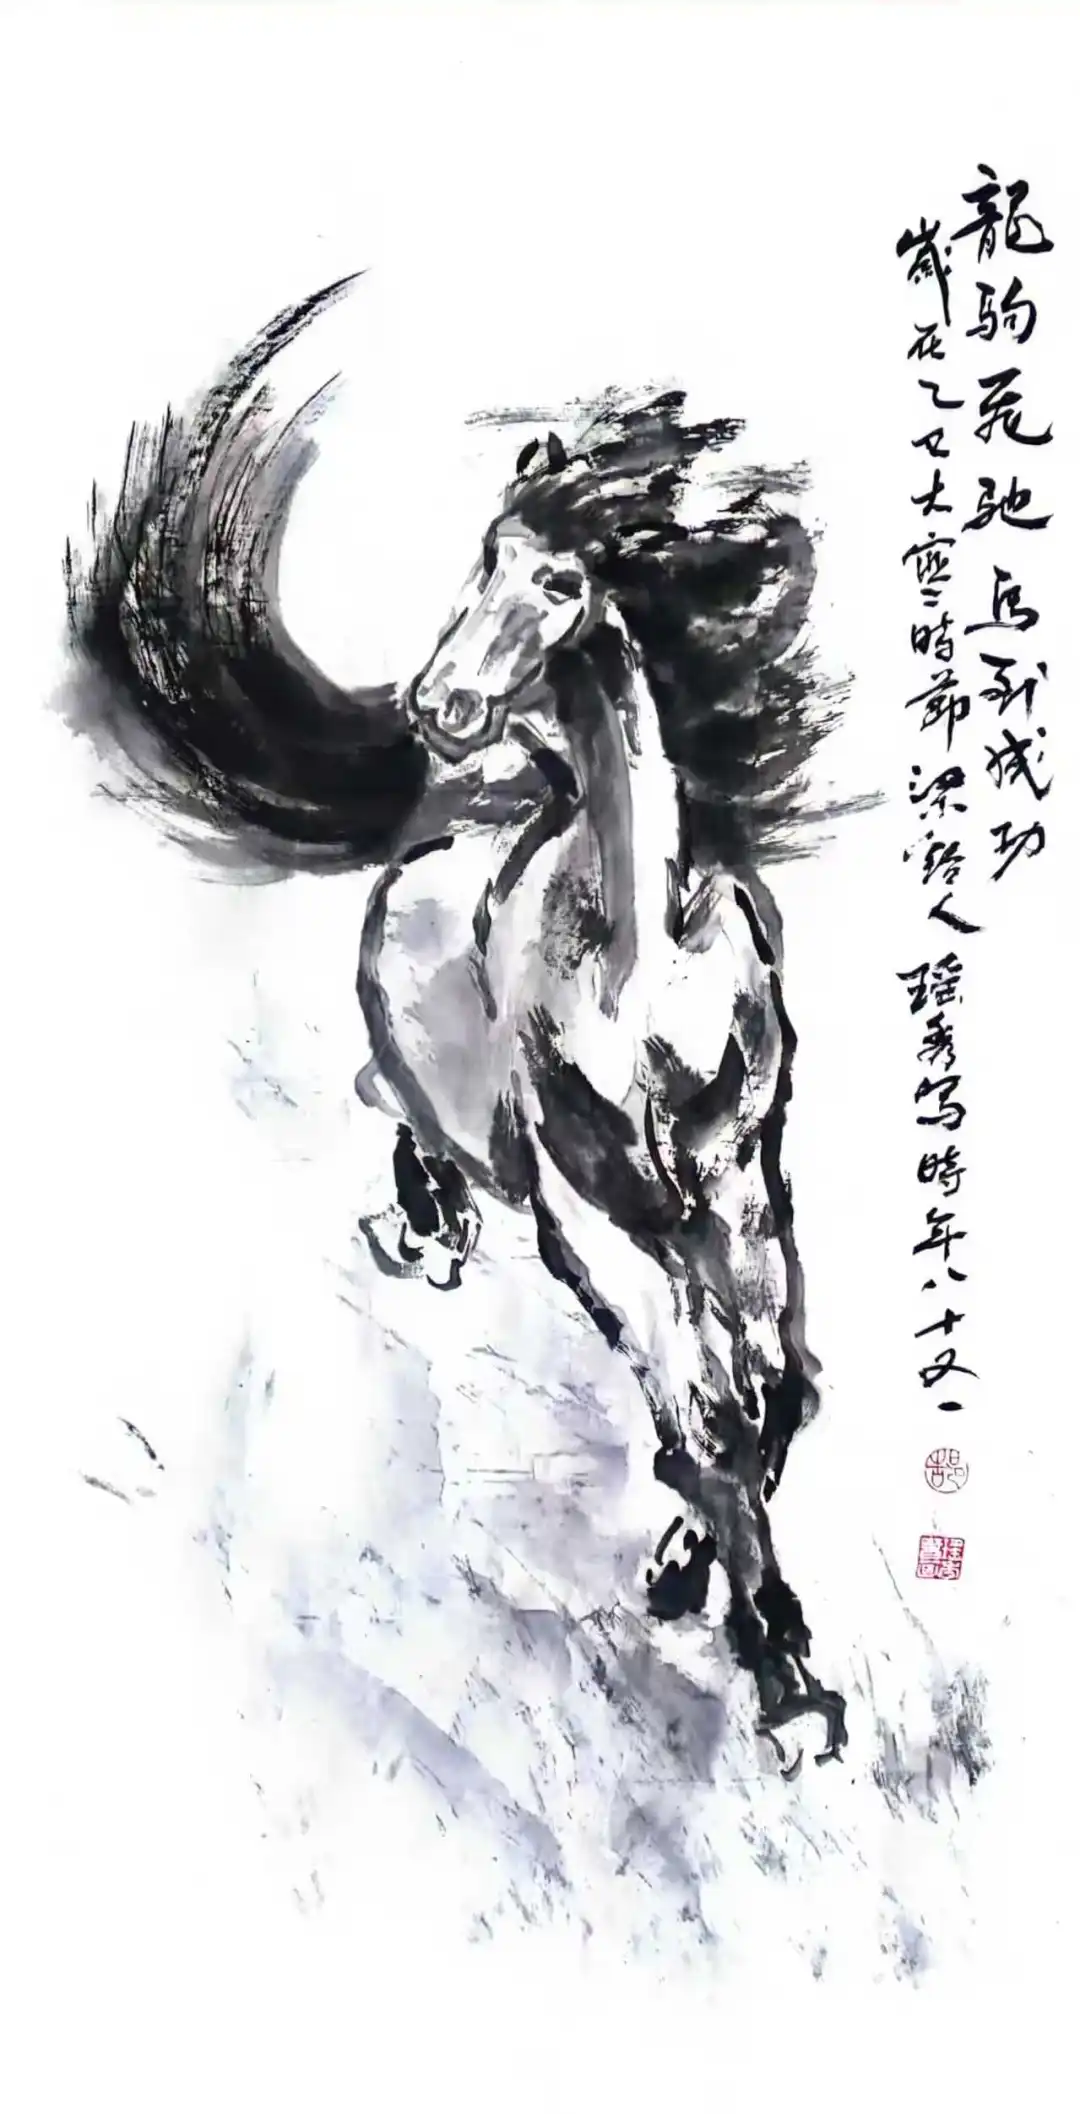 龍駒飛馳馬到成功
歲在乙巳大寒時節梁谿人瑶秀写時年八十又一
胡